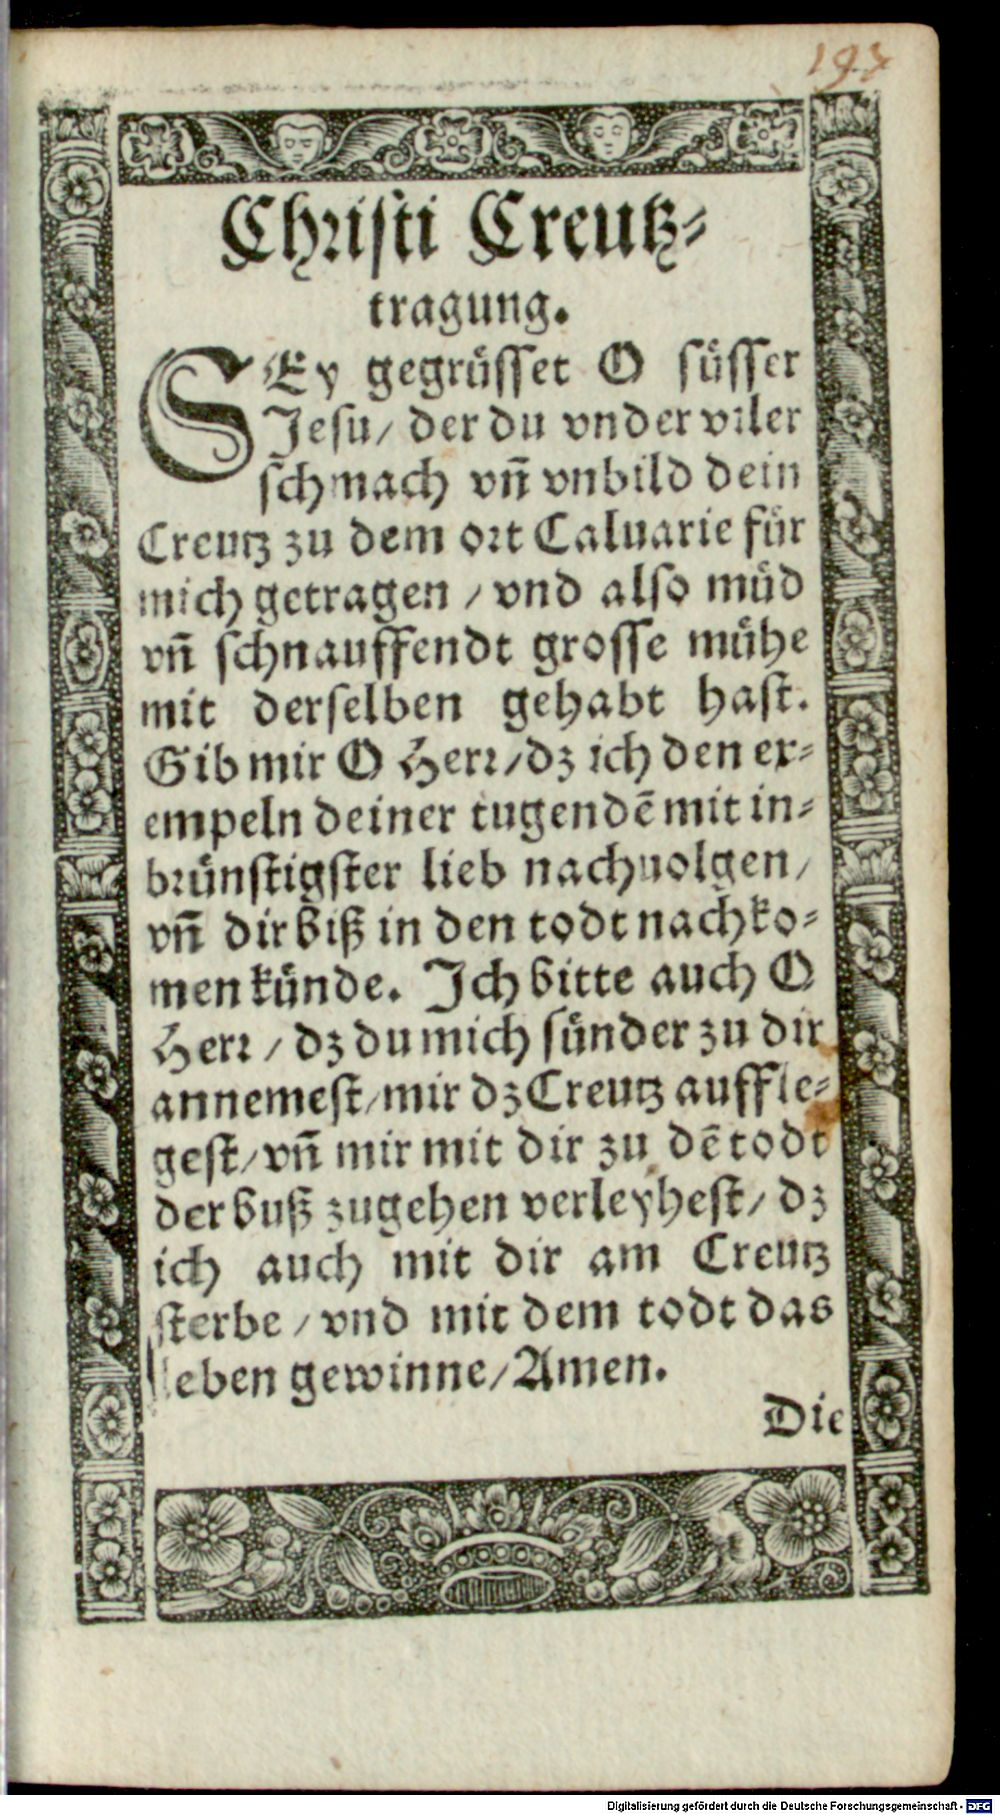 193
Christi Creutz-
tragung.
SEy gegrüsset O süsser
Jesu/ der du vnder viler
schmach vñ vnbild dein
Creutz zu dem ort Caluarie für
mich getragen / vnd also müd
vñ schnauffendt grosse mühe
mit derselben gehabt hast.
Gib mir O Herr/dz ich den ex-
empeln deiner tugendē mit in-
brünstigster lieb nachuolgen/
vñ dir biß in den todt nachko-
men künde. Ich bitte auch O
Herr / dz du mich sünder zu dir
annemest/mir dz Creutz auffle-
gest/vñ mir mit dir zu dē todt
der buß zugehen verleyhest/ dz
ich auch mit dir am Creutz
sterbe / vnd mit dem todt das
leben gewinne/Amen.
Die
Digitalisierung gefördert durch die Deutsche Forschungsgemeinschaft - DFG